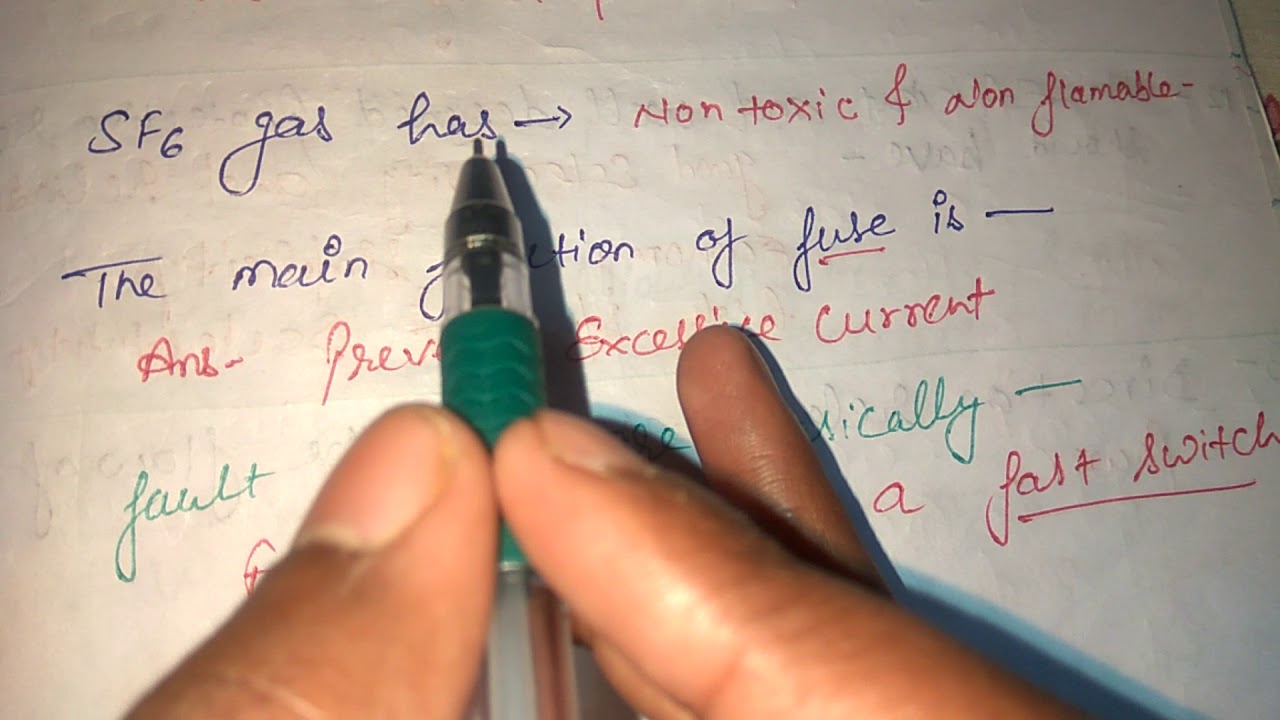 SF6 gas has → Non toxic & Non flamable-
The main of fuse is —
Ans- Excessive Current
fault —
a fast switch